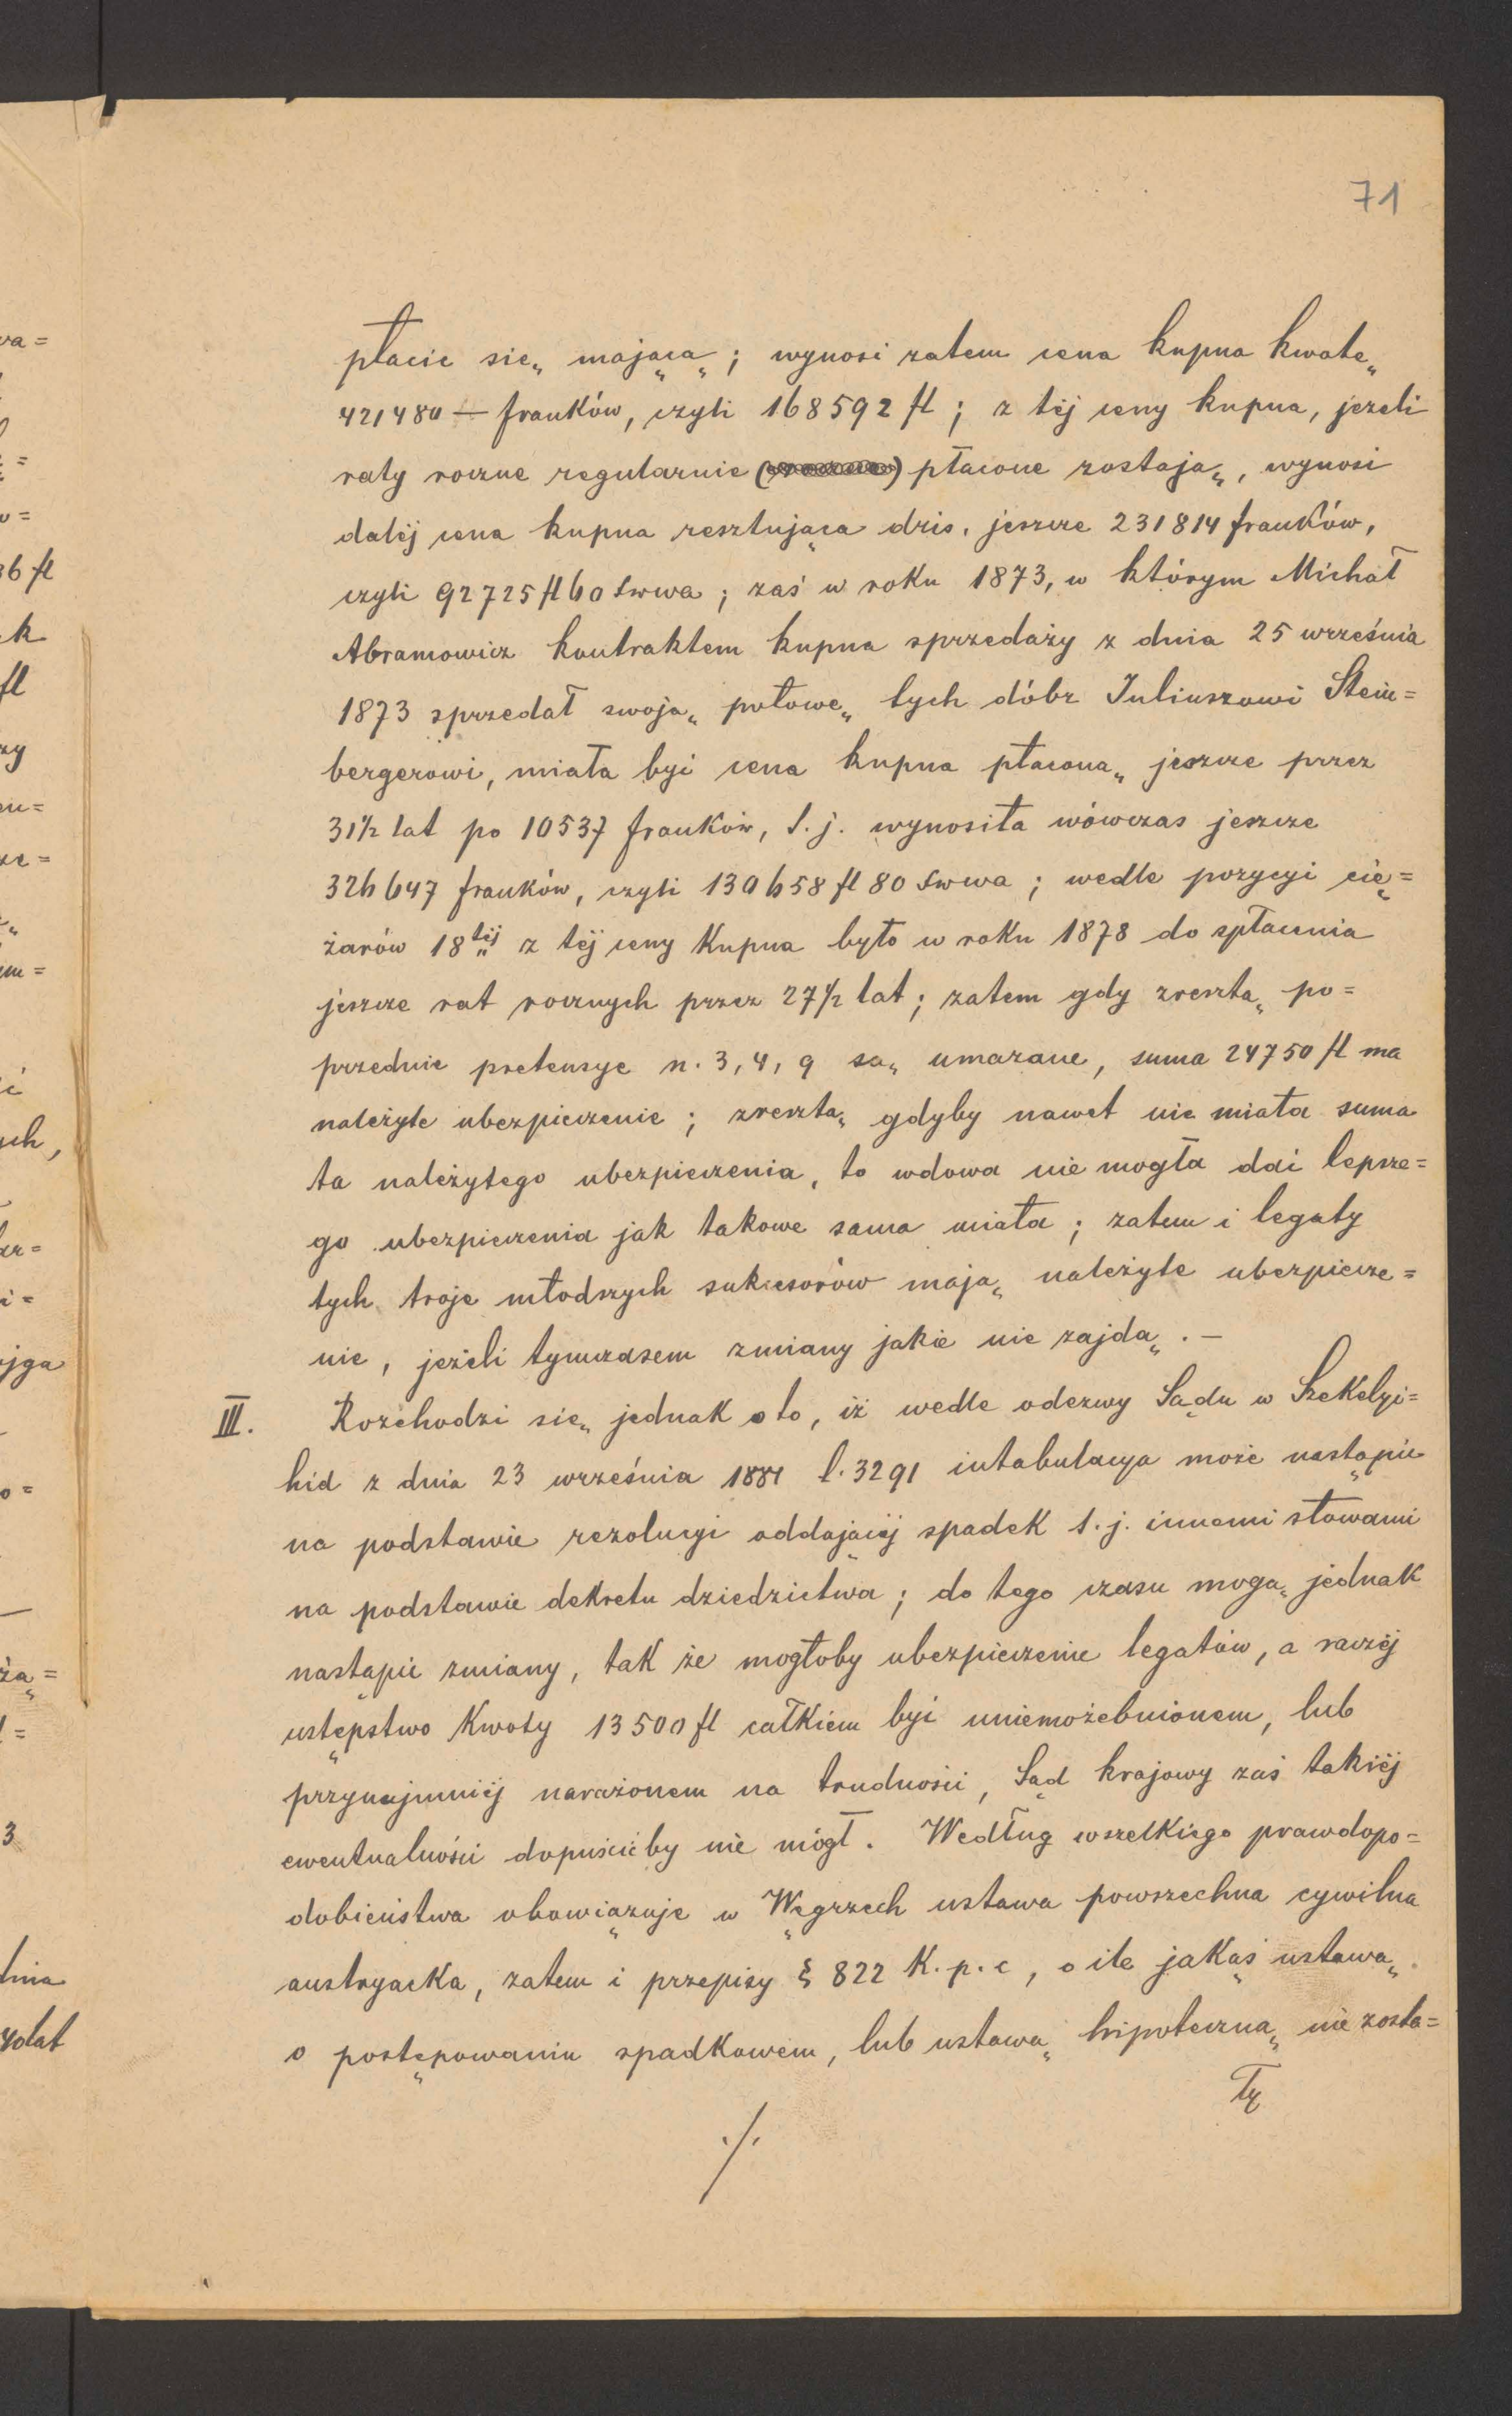 71
płacić się mającą; wynosi zatem cena kupna kwotę
421480 — franków, czyli 168592 fl; z téj ceny kupna, jezeli
raty roczne regularnie płacone zostają, wynosi
daléj cena kupna resztująca dziś jeszcze 231814 franków,
czyli 92725 fl 60 wa; zaś w roku 1873, w którym Michał
Abramowicz kontraktem kupna sprzedaży z dnia 25 września
1873 sprzedał swoją połowę tych dóbr Juliuszowi Stein=
bergerowi, miała być cena kupna płaconą jeszcze przez
31½ lat po 10537 franków, t.j. wynosiła wówczas jeszcze
326647 franków, czyli 130658 fl 80 wa; wedle pozycyi cię=
żarów 18téj z téj ceny Kupna było w roku 1878 do spłacenia
jeszcze rat rocznych przez 27½ lat; zatem gdy zresztą po=
przednie pretensye n. 3, 4, 9 są umazane, suma 24750 fl ma
należyte ubezpieczenie; zresztą gdyby nawet nie miała suma
ta należytego ubezpieczenia, to wdowa nie mogła dać lepsze=
go ubezpieczenia jak takowe sama miała; zatem i legaty
tych troje młodszych sukcesorów mają należyte ubezpiecze=
nie, jeżeli tymczasem zmiany jakie nie zajdą. —
III. Rozchodzi się jednak o to, iż wedle odezwy Sądu w Szekelyi=
hid z dnia 23 września 1881 l. 3291 intabulacya może nastąpić
na podstawie rezolucyi oddającéj spadek t.j. innemi słowami
na podstawie dekretu dziedzictwa; do tego czasu mogą jednak
nastąpić zmiany, tak że mogłoby ubezpieczenie legatów, a raczéj
ustępstwo Kwoty 13500 fl całkiem być uniemożebnionem, lub
przynajmniéj narażonem na trudności, Sąd krajowy zaś takiéj
ewentualności dopuścićby nie mógł. Według wszelkiego prawdopo=
dobieństwa obowiązuje w Węgrzech ustawa powszechna cywilna
austryacka, zatem i przepisy § 822 K.p.c, o ile jakąś ustawą
o postępowaniu spadkowem, lub ustawą hipoteczną nie zosta=
ły
./.